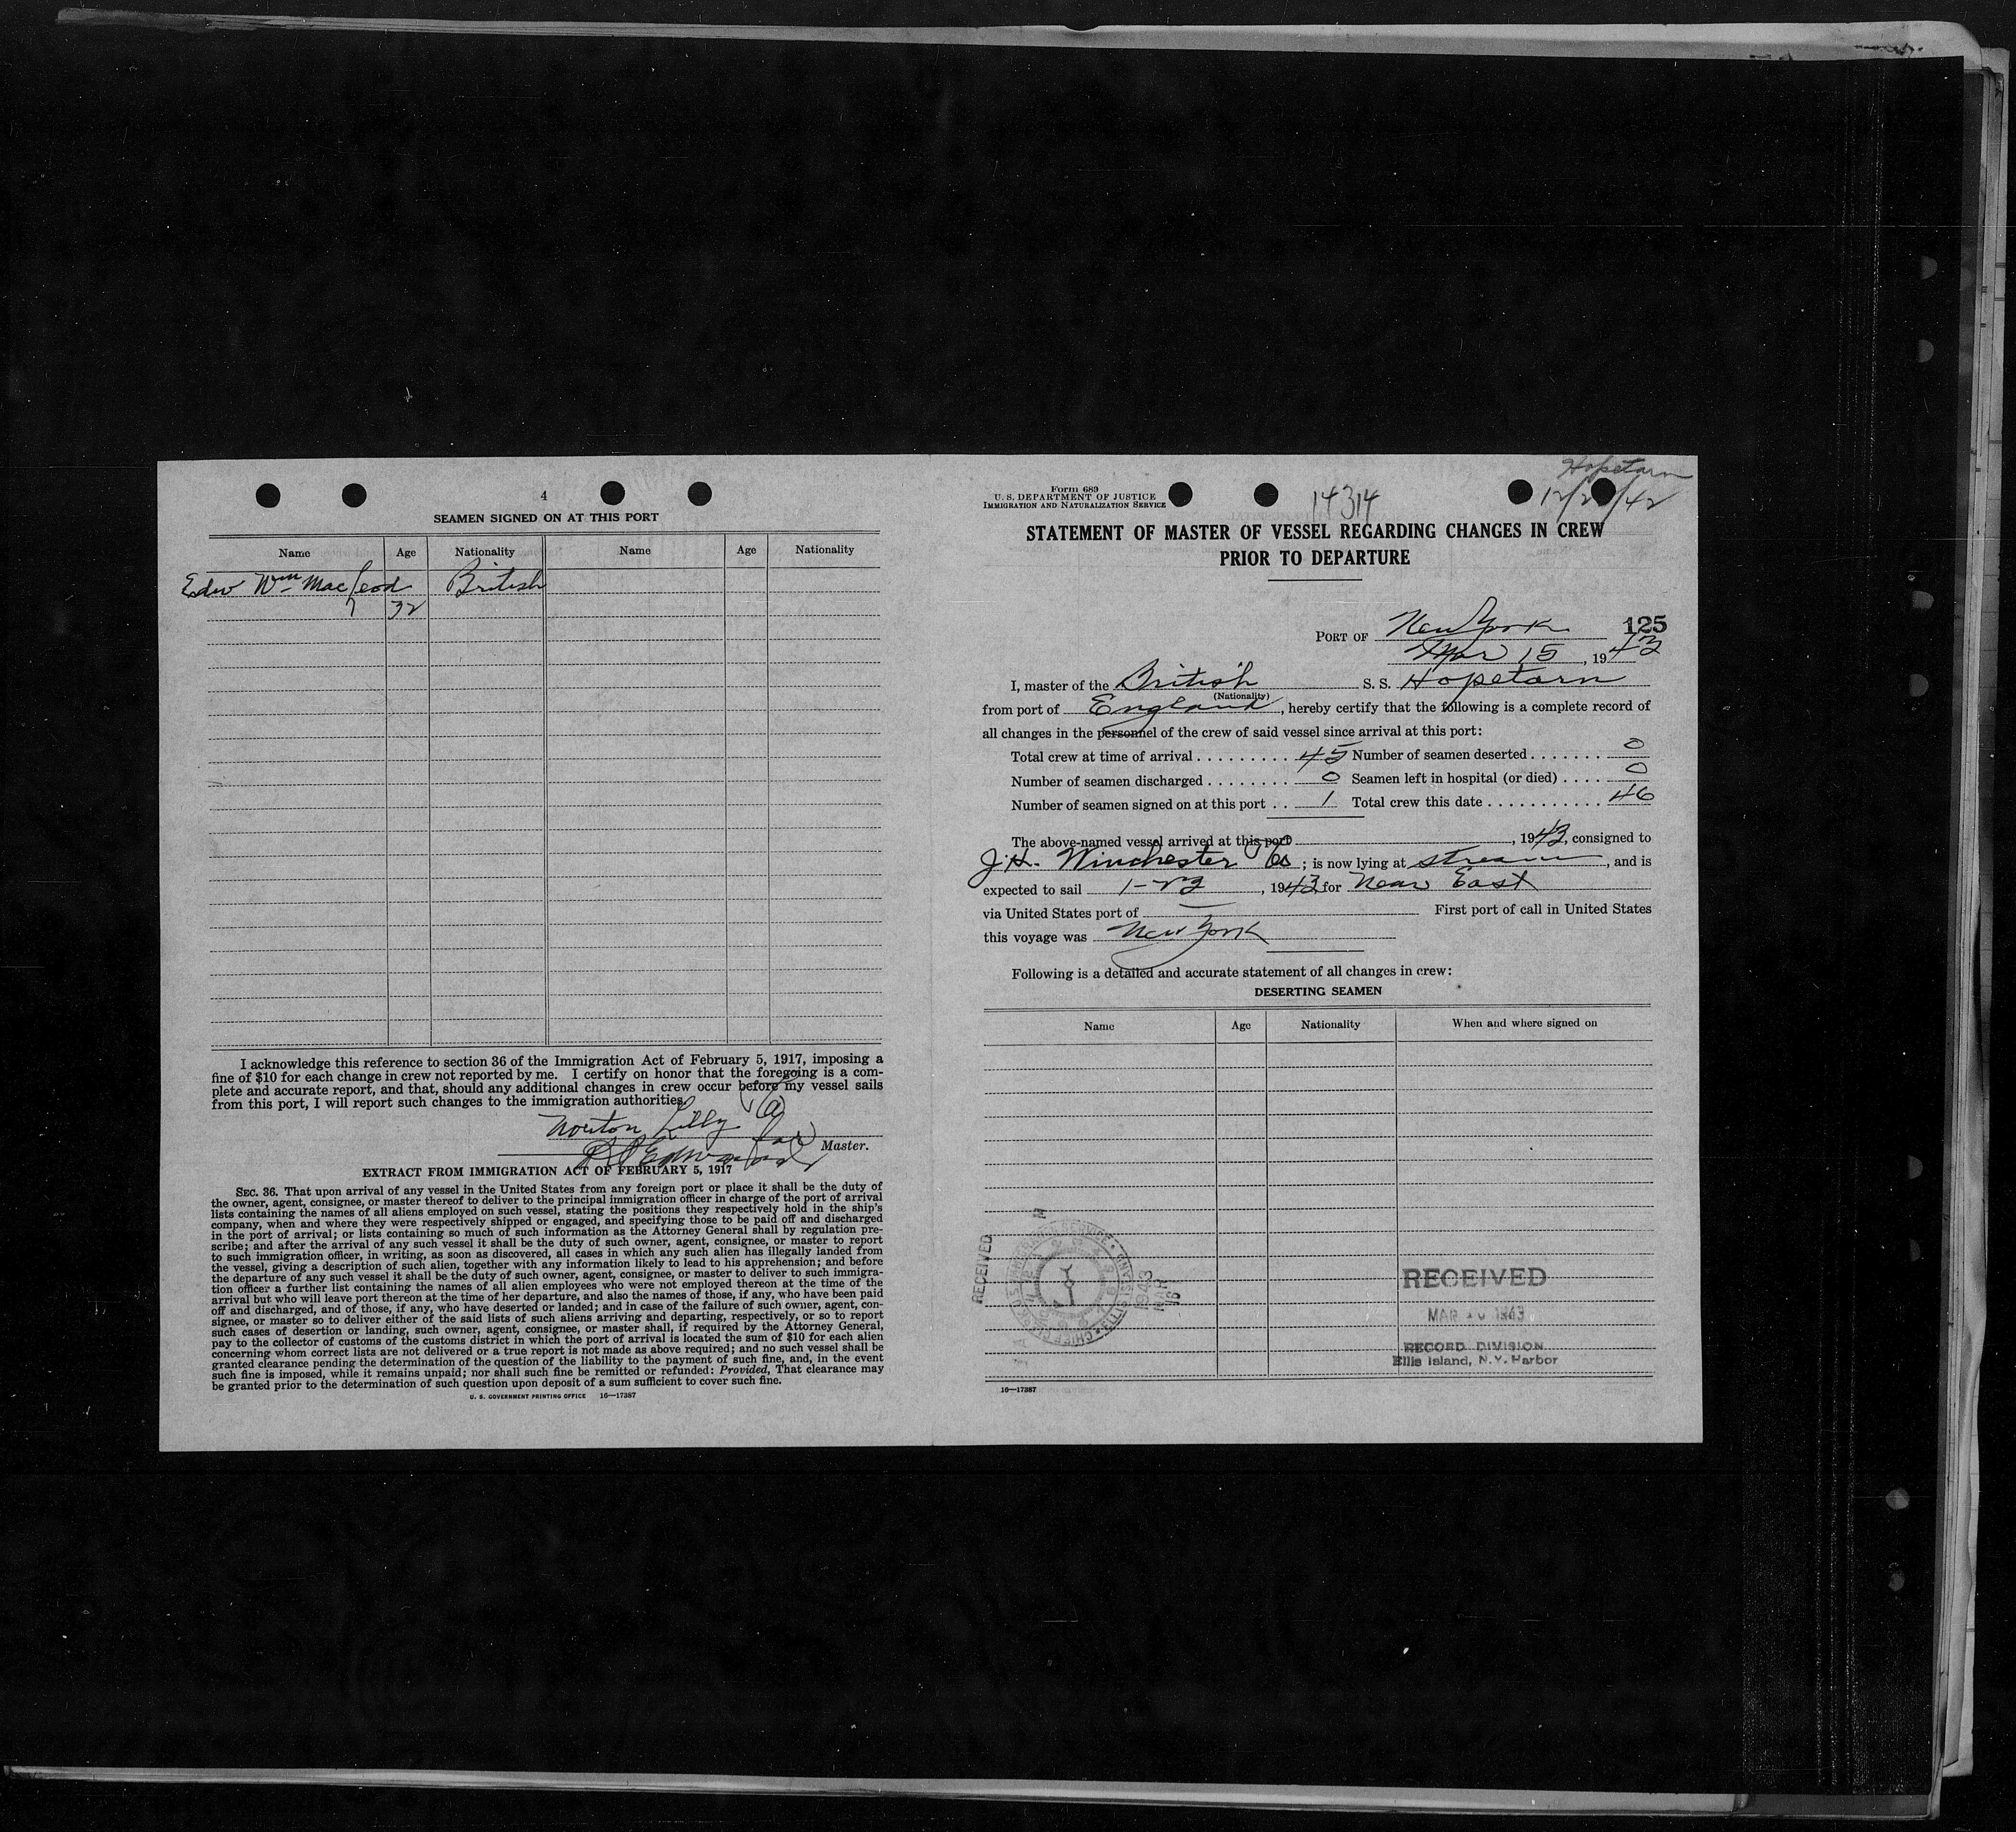 4
SEAMEN SIGNED ON AT THIS PORT
Name Age Nationality Name Age Nationality
Edw Wm MacLeod British
32
I acknowledge this reference to section 36 of the Immigration Act of February 5, 1917, imposing a
fine of $10 for each change in crew not reported by me. I certify on honor that the foregoing is a com-
plete and accurate report, and that, should any additional changes in crew occur before my vessel sails
from this port, I will report such changes to the immigration authorities.
Norton Lilly
Master.
EXTRACT FROM IMMIGRATION ACT OF FEBRUARY 5, 1917
SEC. 36. That upon arrival of any vessel in the United States from any foreign port or place it shall be the duty of
the owner, agent, consignee, or master thereof to deliver to the principal immigration officer in charge of the port of arrival
lists containing the names of all aliens employed on such vessel, stating the positions they respectively hold in the ship's
company, when and where they were respectively shipped or engaged, and specifying those to be paid off and discharged
in the port of arrival; or lists containing so much of such information as the Attorney General shall by regulation pre-
scribe; and after the arrival of any such vessel it shall be the duty of such owner, agent, consignee, or master to report
to such immigration officer, in writing, as soon as discovered, all cases in which any such alien has illegally landed from
the vessel, giving a description of such alien, together with any information likely to lead to his apprehension; and before
the departure of any such vessel it shall be the duty of such owner, agent, consignee, or master to deliver to such immigra-
tion officer a further list containing the names of all alien employees who were not employed thereon at the time of the
arrival but who will leave port thereon at the time of her departure, and also the names of those, if any, who have been paid
off and discharged, and of those, if any, who have deserted or landed; and in case of the failure of such owner, agent, con-
signee, or master so to deliver either of the said lists of such aliens arriving and departing, respectively, or so to report
such cases of desertion or landing, such owner, agent, consignee, or master shall, if required by the Attorney General,
pay to the collector of customs of the customs district in which the port of arrival is located the sum of $10 for each alien
concerning whom correct lists are not delivered or a true report is not made as above required; and no such vessel shall be
granted clearance pending the determination of the question of the liability to the payment of such fine, and, in the event
such fine is imposed, while it remains unpaid; nor shall such fine be remitted or refunded: Provided, That clearance may
be granted prior to the determination of such question upon deposit of a sum sufficient to cover such fine.
U. S. GOVERNMENT PRINTING OFFICE 16—17387
Hopetarn
Form 689
U. S. DEPARTMENT OF JUSTICE
IMMIGRATION AND NATURALIZATION SERVICE
14314
STATEMENT OF MASTER OF VESSEL REGARDING CHANGES IN CREW
PRIOR TO DEPARTURE
PORT OF New York 125
Mar 15, 1943
I, master of the British S. S. Hopetarn
(Nationality)
from port of England, hereby certify that the following is a complete record of
all changes in the personnel of the crew of said vessel since arrival at this port:
Total crew at time of arrival 45 Number of seamen deserted 0
Number of seamen discharged 0 Seamen left in hospital (or died) 0
Number of seamen signed on at this port 1 Total crew this date 46
The above-named vessel arrived at this port , 1943, consigned to
J. H. Winchester Co ; is now lying at stream, and is
expected to sail , 1943 for Near East
via United States port of — First port of call in United States
this voyage was New York
Following is a detailed and accurate statement of all changes in crew:
DESERTING SEAMEN
Name Age Nationality When and where signed on
RECEIVED
1943 MAR 16
RECEIVED
MAR 16 1943
RECORD DIVISION
Ellis Island, N.Y. Harbor
16—17387